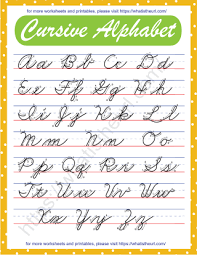 for more worksheets and printables, please visit https://whatistheurl.com/
Cursive Alphabet
Aa Bb Cc Dd
Ee Ff Gg Hh
Ii Jj Kk Ll
Mm Nn Oo
Pp Qq Rr Ss
Tt Uu Vv Ww
Xx Yy Zz
for more worksheets and printables, please visit https://whatistheurl.com/